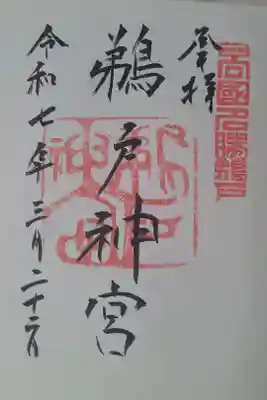 日向國名勝鵜戸
奉拝
鵜戸神宮
令和七年三月二十二日
鵜戸
神宮